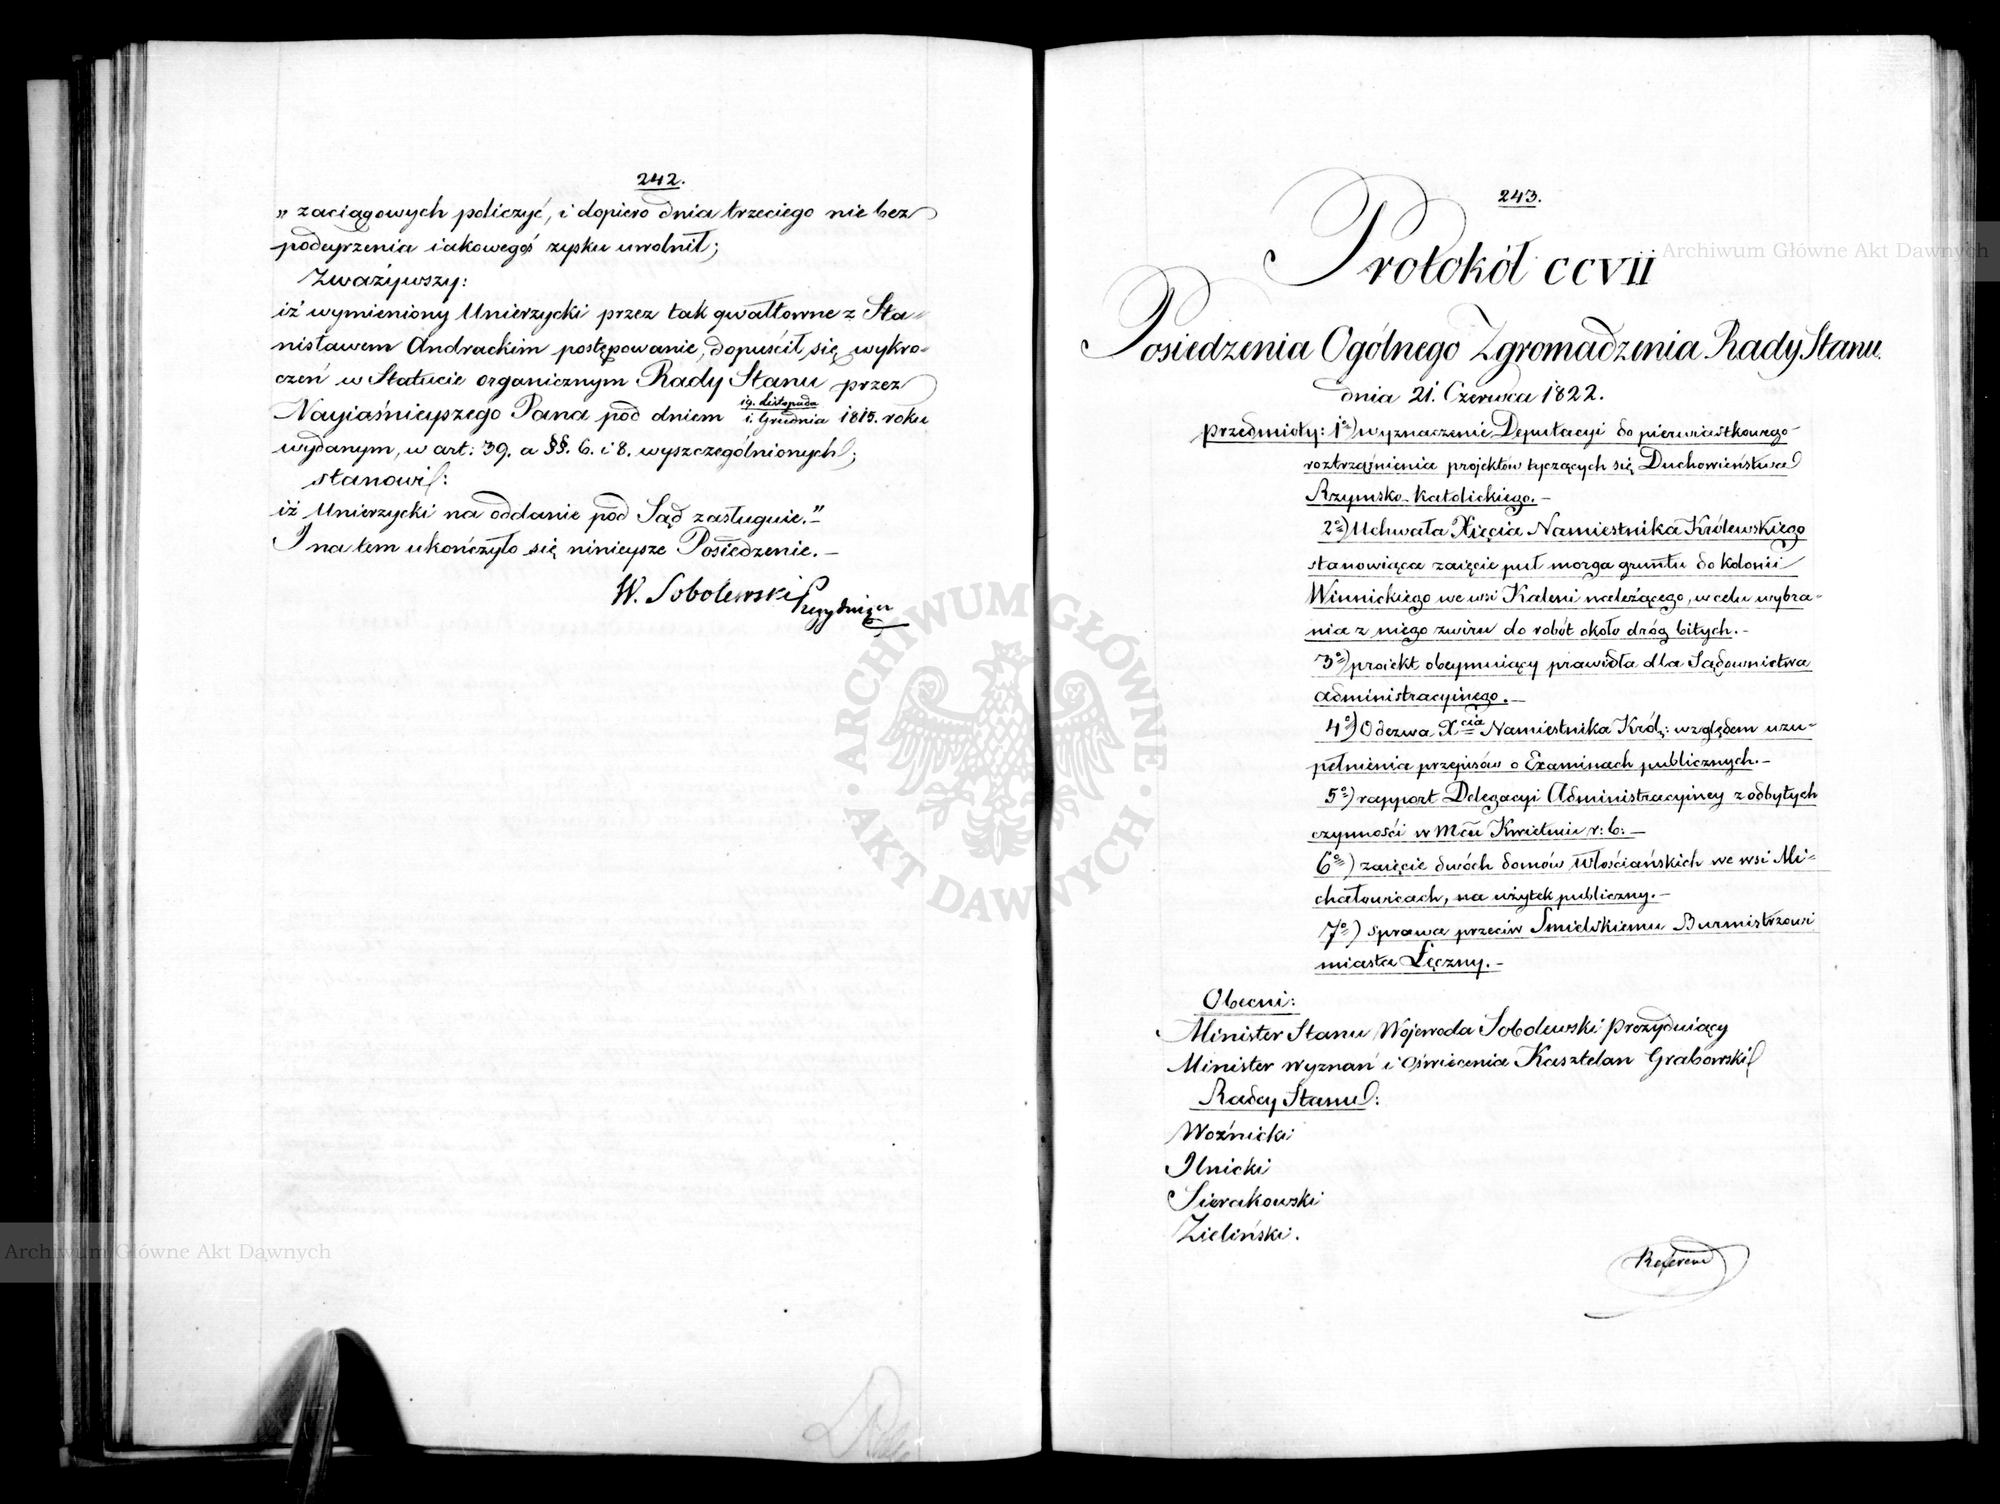 242.
„ zaciągowych policzyć, i dopiero dnia trzeciego nie bez
podeyrzenia iakowegoś zysku uwolnił;
Zważywszy:
iż wymieniony Unierzycki przez tak gwałtowne z Sta-
nisławem Andrackim postępowanie, dopuścił się wykro-
czeń w Statucie organicznym Rady Stanu przez
Nayiaśnieyszego Pana pod dniem 19. Listopada / 1. Grudnia 1815. roku
wydanym, w art: 39. a §§. 6. i 8. wyszczególnionych;
stanowi:
iż Unierzycki na oddanie pod Sąd zasługuie.” –
I na tem ukończyło się ninieysze Posiedzenie. –
W. Sobolewski Prezyduiący
243.
Protokół CCVII
Posiedzenia Ogólnego Zgromadzenia Rady Stanu.
dnia 21. Czerwca 1822.
Przedmioty: 1o) wyznaczenie Deputacyi do pierwiastkowego
roztrząśnienia projektów tyczących się Duchowieństwa
Rzymsko-Katolickiego. –
2o) Uchwała Xięcia Namiestnika Królewskiego
stanowiąca zaięcie puł morga gruntu do kolonii
Winnickiego we wsi Kaleni należącego, w celu wybra-
nia z niego żwiru do robót około dróg bitych. –
3o) proiekt obeymuiący prawidła dla Sądownictwa
administracyinego. –
4o) Odezwa Xcia Namiestnika Król: względem uzu-
pełnienia przepisów o Examinach publicznych. –
5o) rapport Delegacyi Administracyiney z odbytych
czynności w Mcu Kwietniu r: b: –
6o) zaięcie dwóch domów włościańskich we wsi Mi-
chałowicach, na użytek publiczny. –
7o) Sprawa przeciw Smielskiemu Burmistrzowi
miasta Łęczny. –
Obecni:
Minister Stanu Wojewoda Sobolewski Prezyduiący
Minister Wyznań i Oświecenia Kasztelan Grabowski
Radcy Stanu:
Woźnicki
Ilnicki
Sierakowski
Zieliński.
Referend
Archiwum Główne Akt Dawnych
Archiwum Główne Akt Dawnych
· ARCHIWUM GŁÓWNE · AKT DAWNYCH